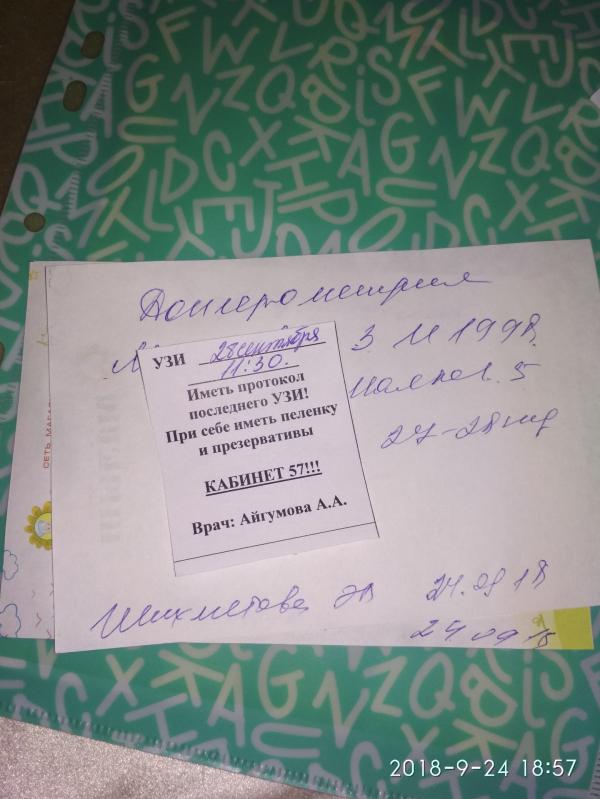 Доплерометрия
УЗИ 28 сентября
11:30.
Иметь протокол
последнего УЗИ!
При себе иметь пеленку
и презервативы
КАБИНЕТ 57!!!
Врач: Айгумова А.А.
3 11 1998
5
27-28 нед
24.09 18
24.09 18
СЕТЬ МАГА
2018-9-24 18:57